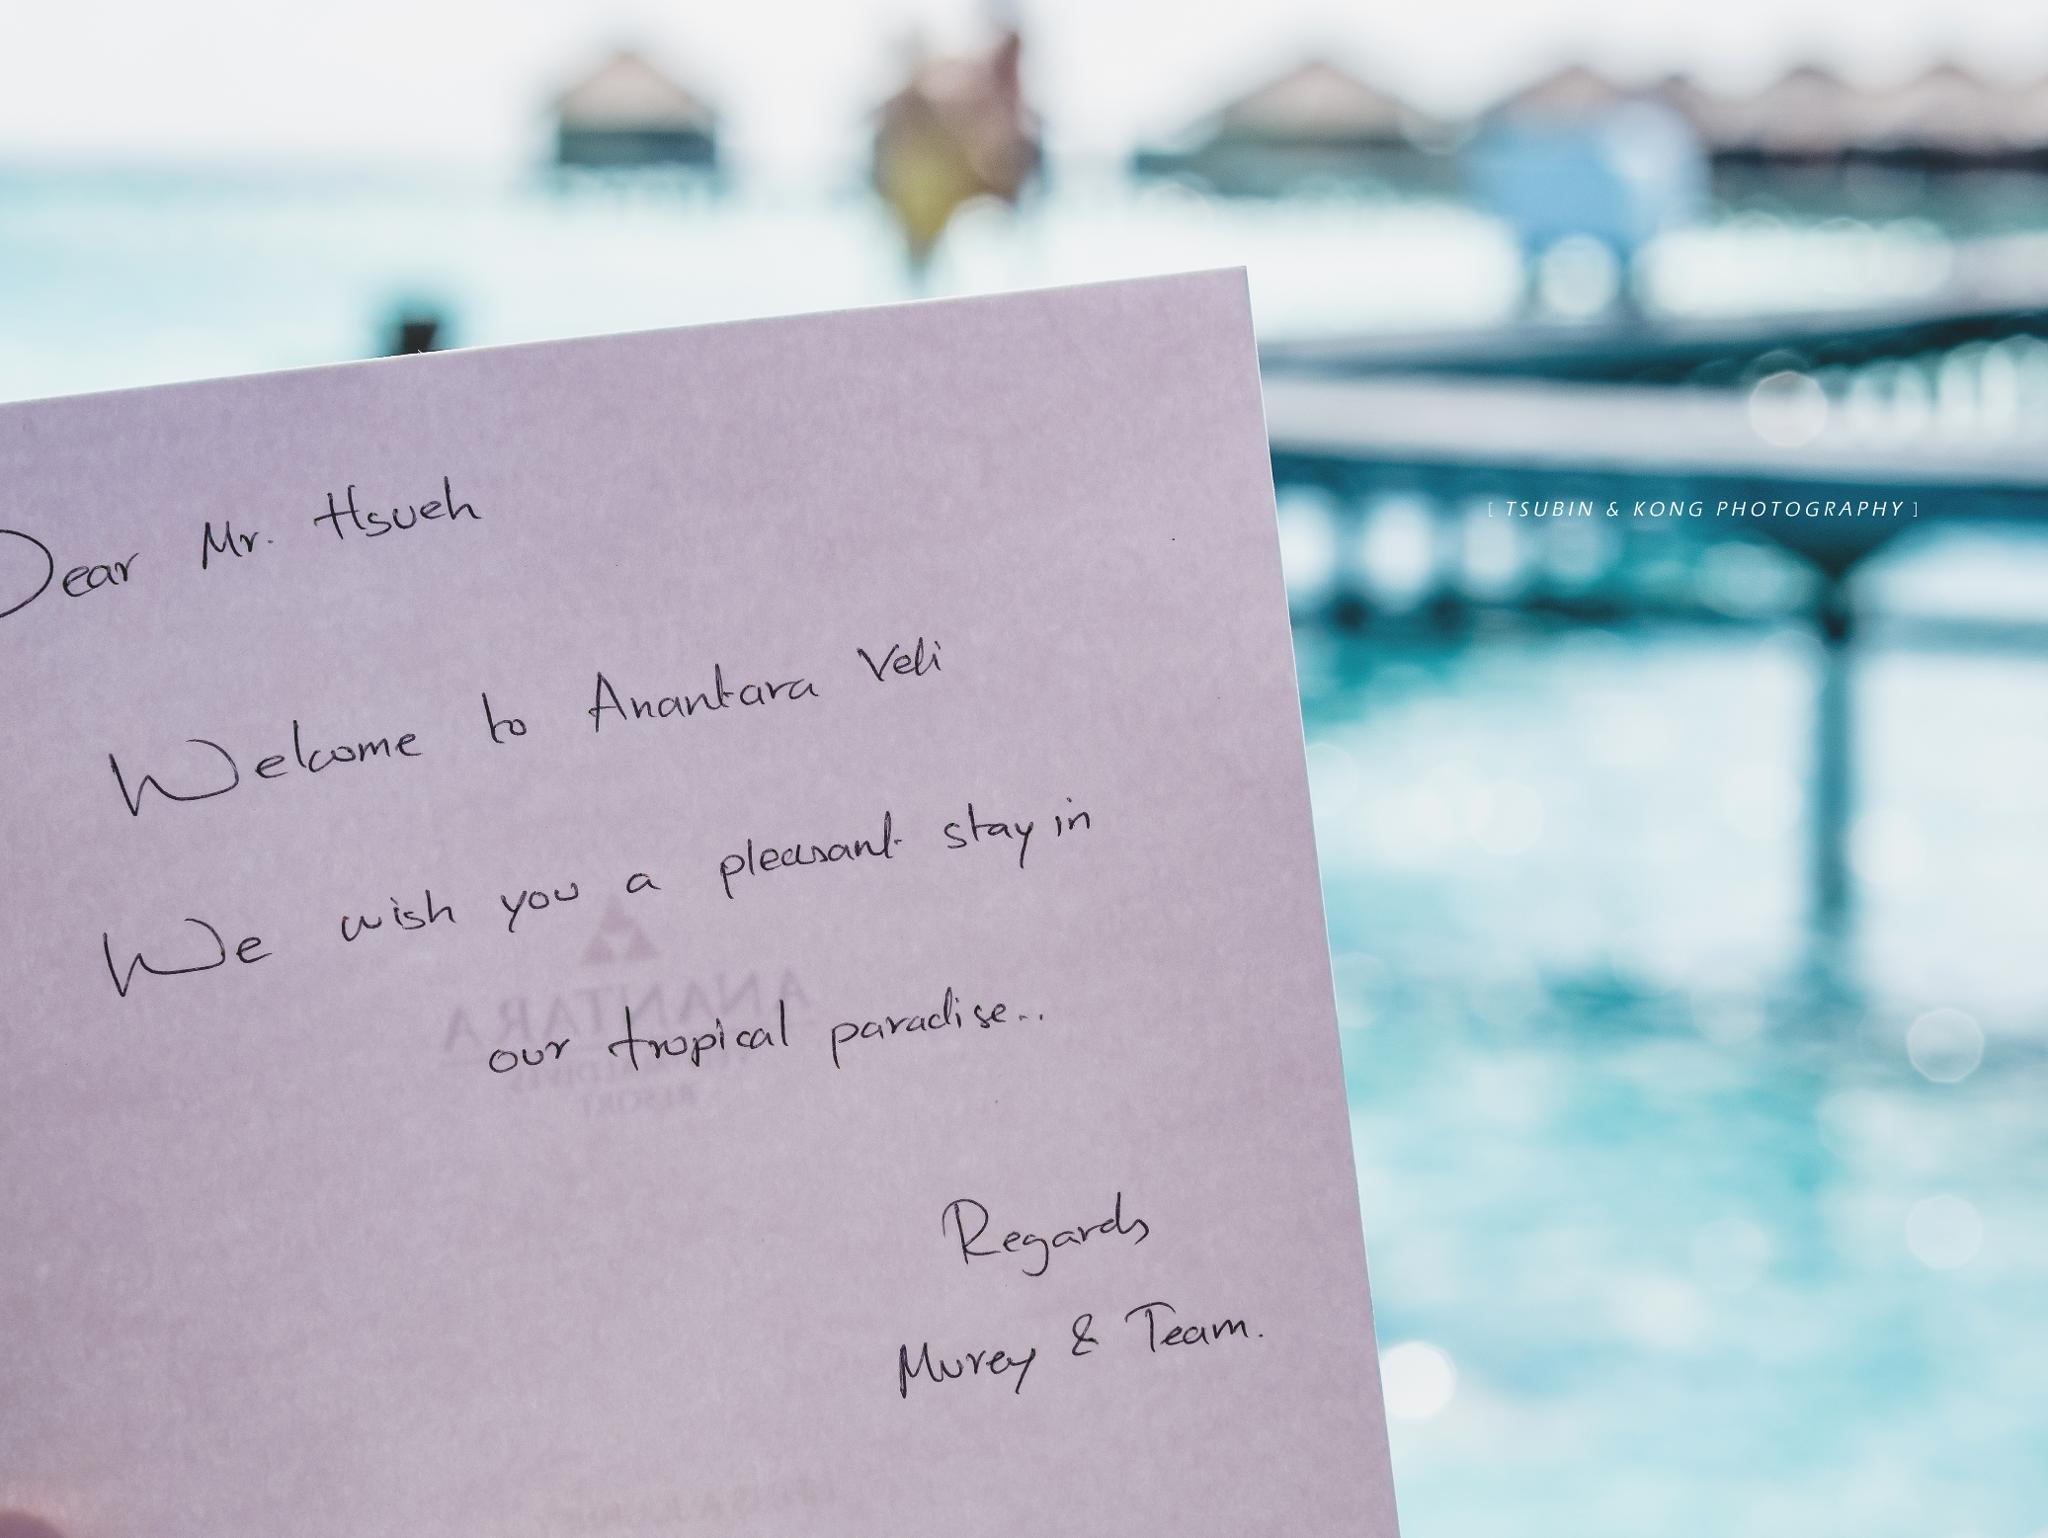 Dear Mr. Hsueh
Welcome to Anantara Veli
We wish you a pleasant stay in
our tropical paradise..
Regards
Murey & Team.
ANANTARA
RESORT
[ TSUBIN & KONG PHOTOGRAPHY ]